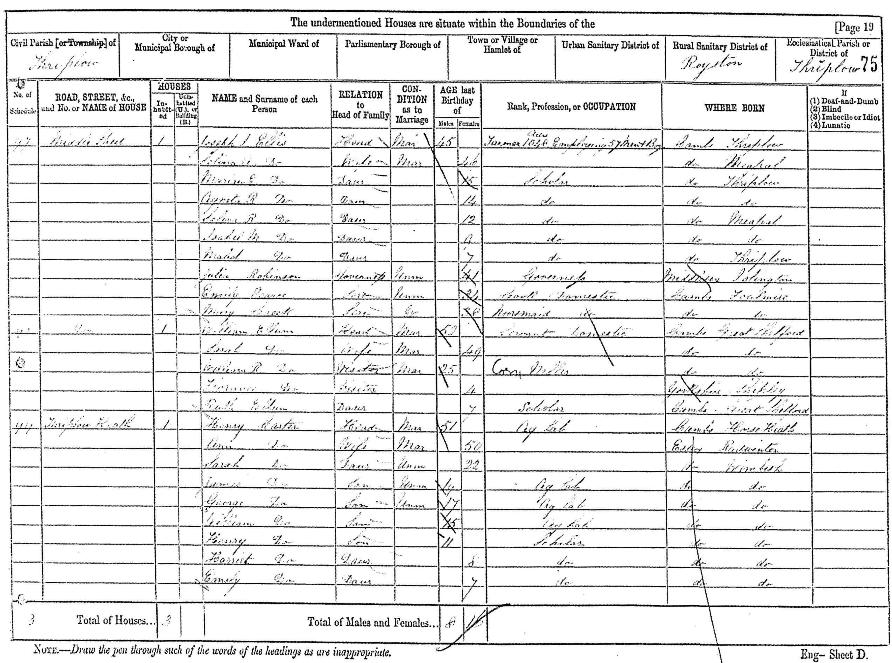 The undermentioned Houses are situate within the Boundaries of the
[Page 19
Civil Parish [or Township] of
Thriplow
City or Municipal Borough of
Municipal Ward of
Parliamentary Borough of
Town or Village or Hamlet of
Urban Sanitary District of
Rural Sanitary District of
Royston
Ecclesiastical Parish or District of
Thriplow 75
No. of Schedule
ROAD, STREET, &c., and No. or NAME of HOUSE
HOUSES
In-habit-ed
Unin-habited (U.), or Building (B.)
NAME and Surname of each Person
RELATION to Head of Family
CON-DITION as to Marriage
AGE last Birthday of
Males
Females
Rank, Profession, or OCCUPATION
WHERE BORN
If
(1) Deaf-and-Dumb
(2) Blind
(3) Imbecile or Idiot
(4) Lunatic
Middle Street 1 Joseph Ellis Head Mar 45 Farmer Employing Cambs Thriplow
Do Wife Mar 46 do Mepal
Do Daur 15 Scholar do Thriplow
R Do Daur 14 do do do
R Do Daur 12 do do Mepal
Isabel M Do Daur 9 do do do
Maud Do Daur 7 do do Thriplow
Julia Robinson Governess Unm 41 Governess Middlesex Islington
Emily Serv Unm 21 Cook Domestic Cambs Foulmire
Mary Serv Do Housemaid do do do
Do 1 William Head Mar 53 Servant Domestic Cambs Great Shelford
Sarah Do Wife Mar 49 do do
William R Do Visitor Mar 25 Corn Miller do do
Florence Do Visitor 4 Yorkshire
Ruth Daur 7 Scholar Cambs Great Shelford
Thriplow Heath 1 Henry Head Mar 51 Ag Lab Cambs Horse Heath
Do Wife Mar 50 Essex Radwinter
Sarah Do Daur Unm 22 do Wimbish
James Do Son Unm 19 Ag Lab do do
George Do Son Unm 17 Ag Lab do do
William Do Son 15 Ag Lab do do
Henry Do Son 11 Scholar do do
Harriet Do Daur 8 do do do
Emily Do Daur 7 do do do
3 Total of Houses... 3
Total of Males and Females... 8 16
NOTE.—Draw the pen through such of the words of the headings as are inappropriate.
Eng– Sheet D.